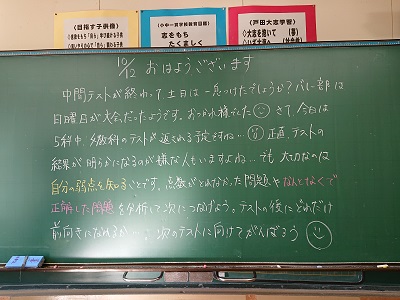 〈目指す子供像〉
〈小中一貫学校教育目標〉
志をもち
たくましく
〈戸田大志学習〉
◇大志を抱いて (夢)
10/12 おはようございます
中間テストが終わって土日は一息つけたでしょうか？バレー部は
日曜日が大会だったようです。おつかれ様でした さて、今日は
5科中、多数科のテストが返される予定ですね… 正直、テストの
結果が明らかになるのが嫌な人もいますよね… でも 大切なのは
自分の弱点を知ることです。点数がとれなかった問題や なんとなくで
正解した問題 を分析して次につなげよう。テストの後にどれだけ
前向きになれるか…！次のテストに向けてがんばろう